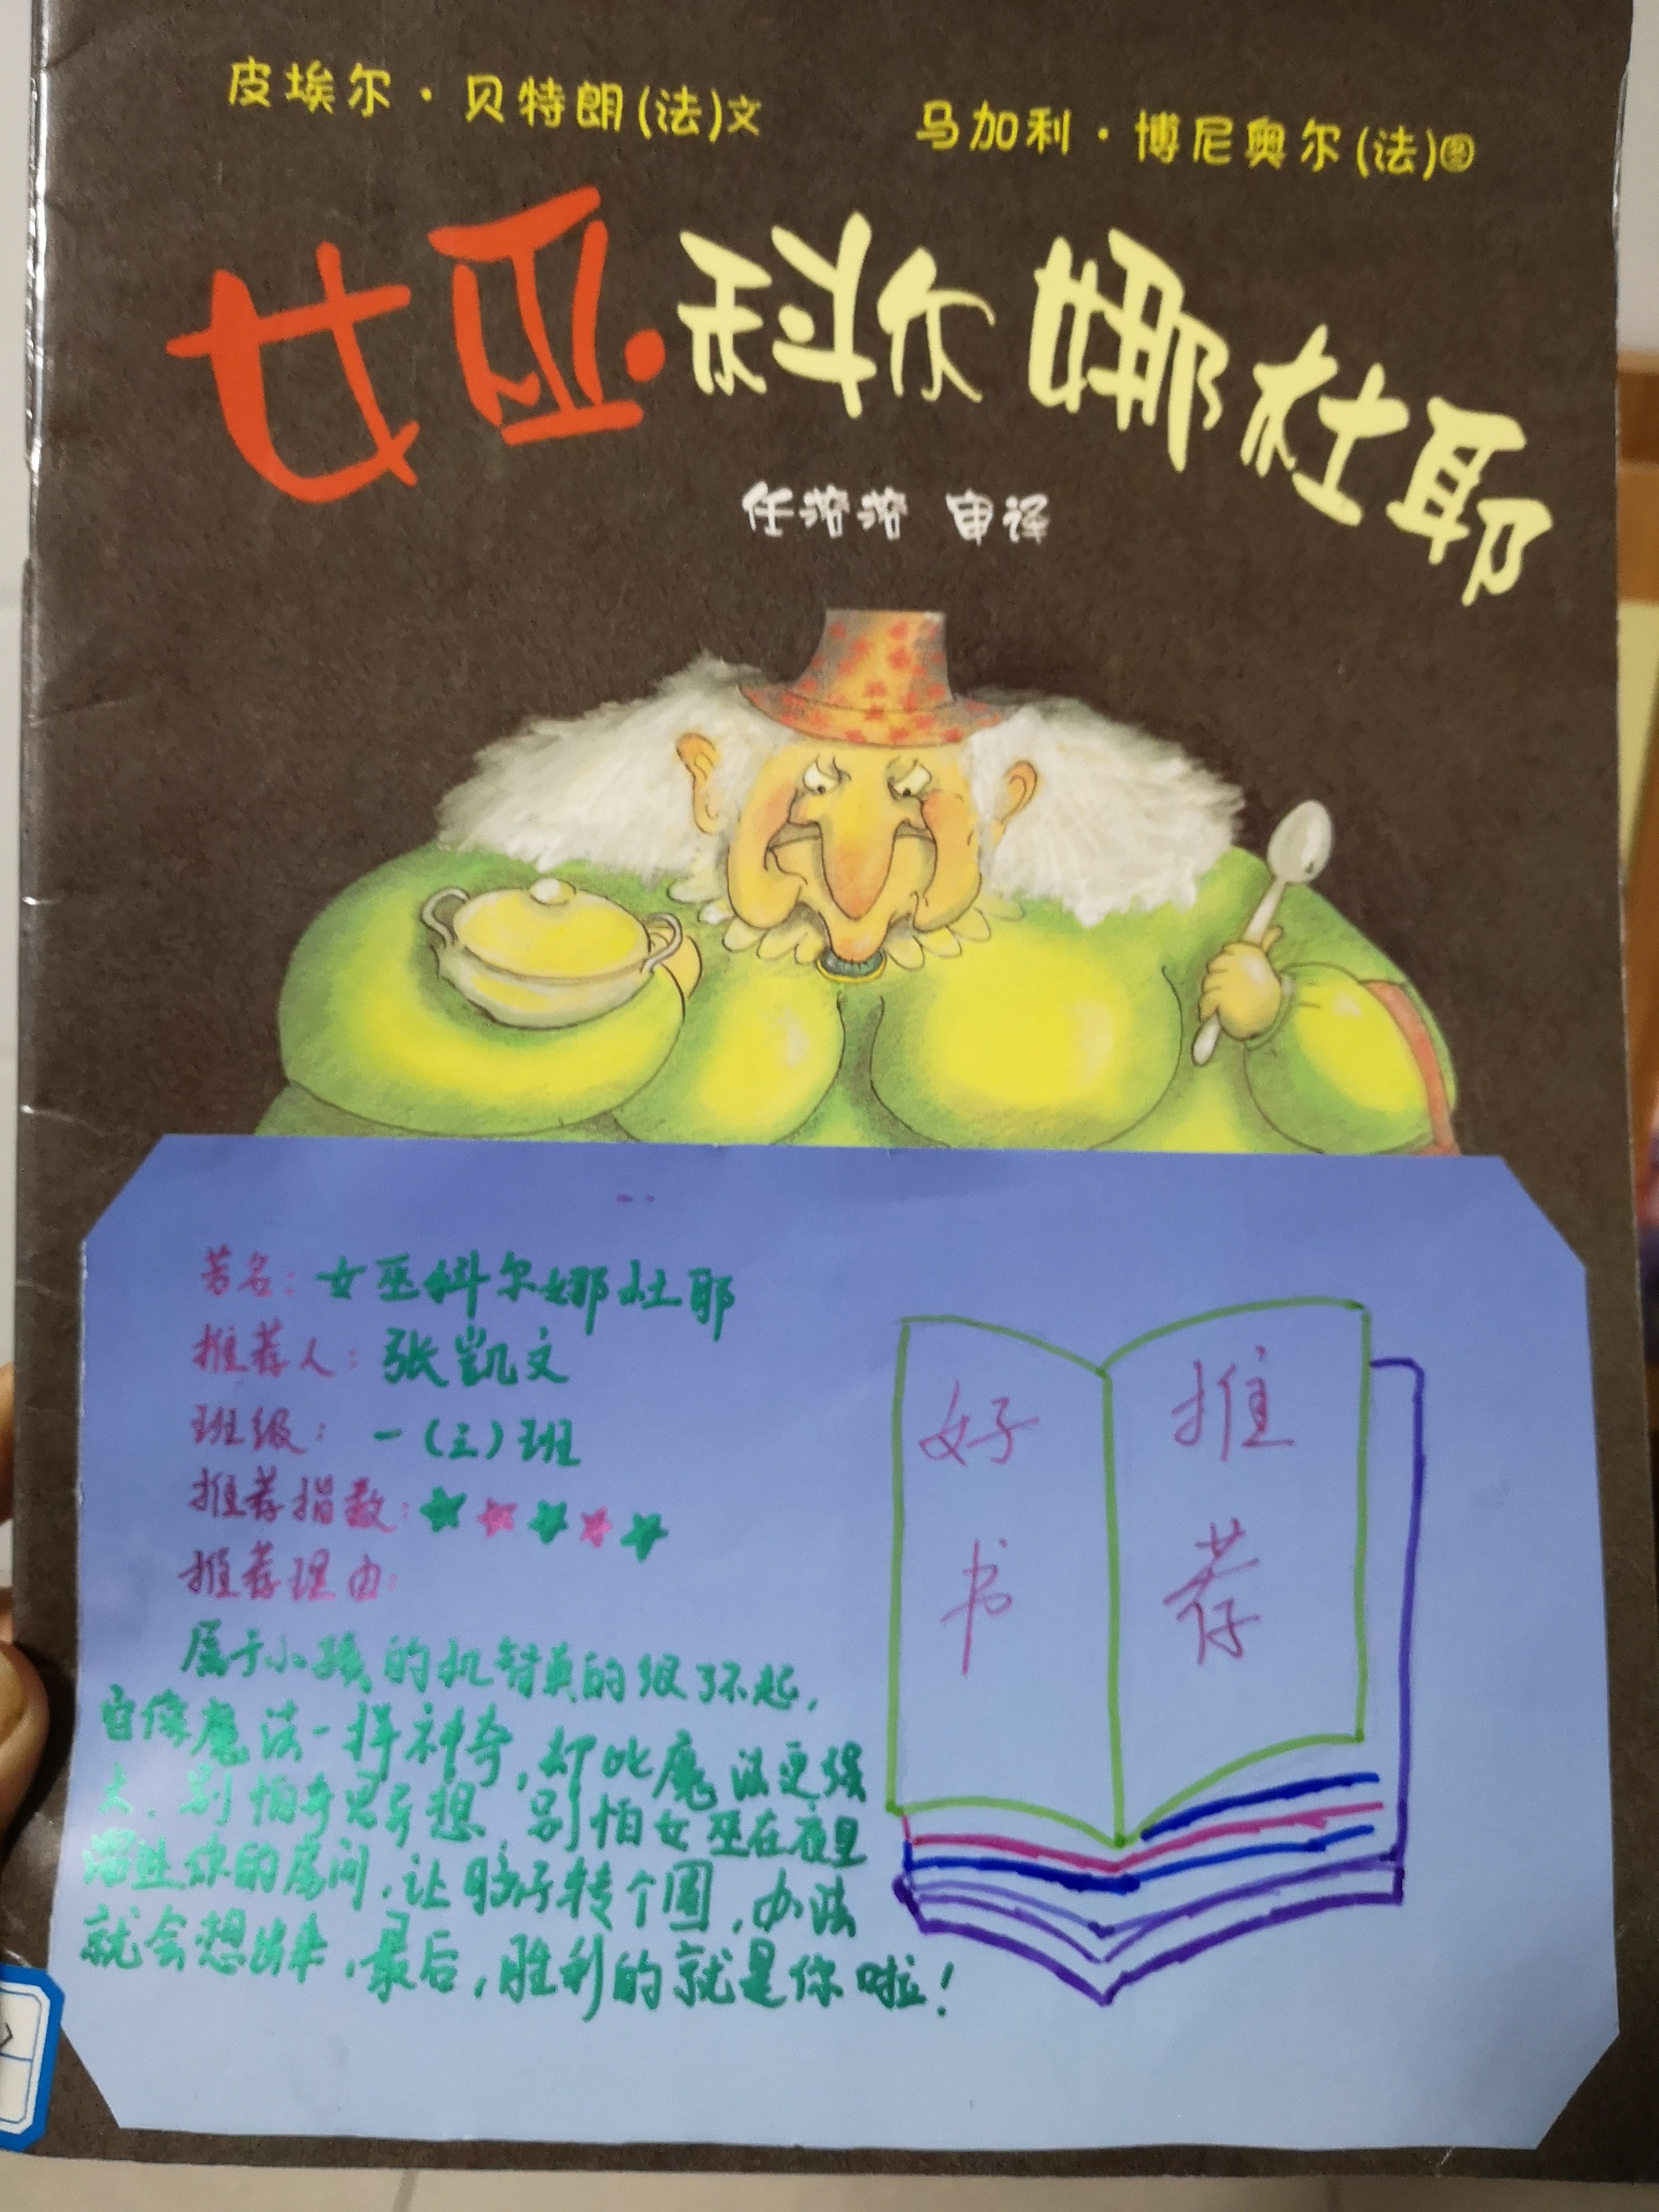 皮埃尔·贝特朗(法)文
马加利·博尼奥尔(法)图
女巫·科尔娜杜耶
任溶溶 审译
书名：女巫科尔娜杜耶
推荐人：张凯文
班级：一（三）班
推荐指数：★★★★★
推荐理由：
属于小孩的机智真的很了不起，
它像魔法一样神奇，却比魔法更强
大。别怕奇思异想，别怕女巫在夜里
溜进你的房间，让脑子转个圈，办法
就会想出来，最后，胜利的就是你啦！
好书
推荐